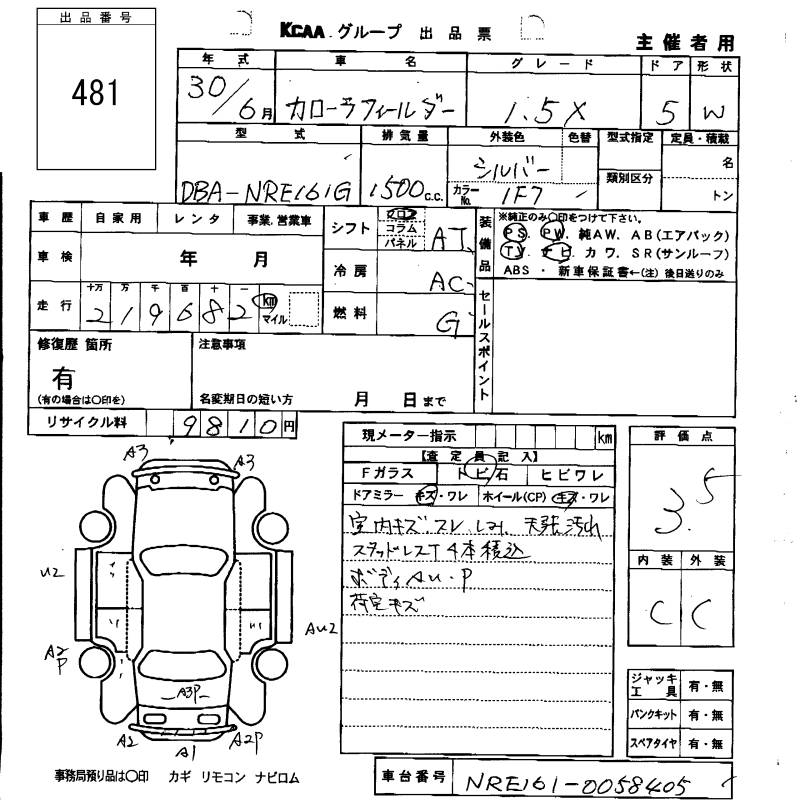 出品番号
481
KCAA グループ 出品票
主催者用
年式 車名 グレード ドア 形状
30/6月 カローラフィールダー 1.5X 5 W
型式 排気量 外装色 色替 型式指定 定員・積載
DBA-NRE161G 1500c.c. シルバー 類別区分 名
カラーNo. 1F7 トン
車歴 自家用 レンタ 事業.営業車
車検 年 月
走行 十万 万 千 百 十 一
2 1 9 6 8 2 km
マイル
シフト フロア コラム パネル AT
冷房 AC
燃料 G
装備品
※純正のみ〇印をつけて下さい。
PS、PW、純AW、AB(エアバック)
TV、ナビ、カワ、SR(サンルーフ)
ABS ・ 新車保証書←(注) 後日送りのみ
セールスポイント
修復歴 箇所
有
(有の場合は〇印を)
注意事項
名変期日の短い方 月 日まで
リサイクル料 9810円
現メーター指示 km
【査定員記入】
Fガラス トビ石 ヒビワレ
ドアミラー キズ・ワレ ホイール(CP) キズ・ワレ
室内キズ.スレ.シミ. 天張汚れ
スタッドレスT 4本積込
ボディAU・P
荷室キズ
評価点
3.5
内装 外装
C C
ジャッキ工具 有・無
パンクキット 有・無
スペアタイヤ 有・無
A3 A3
U2
AU2
A2
P
A3P
A2 A1 A2P
事務局預り品は〇印 カギ リモコン ナビロム
車台番号 NRE161-0058405